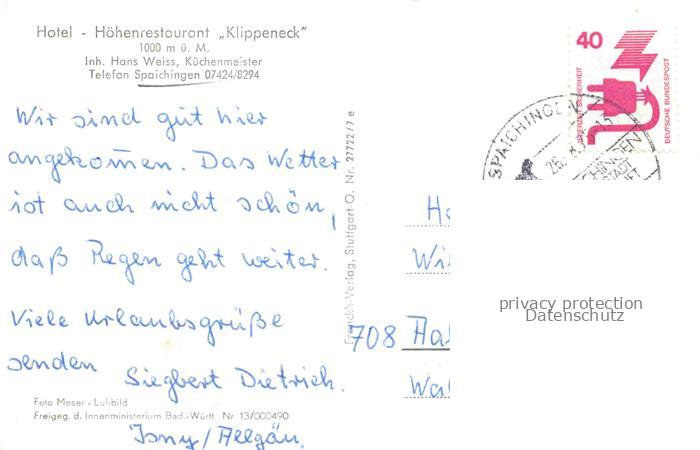 Hotel - Höhenrestaurant „Klippeneck"
1000 m ü. M.
Inh. Hans Weiss, Küchenmeister
Telefon Spaichingen 07424/8294
Wir sind gut hier
angekommen. Das Wetter
ist auch nicht schön,
daß Regen geht weiter.
Viele Urlaubsgrüße
senden Siegbert Dietrich.
Isny/Allgäu
Foto Moser - Luftbild
Freigeg. d. Innenministerium Bad.-Württ. Nr. 13/000490
Franckh-Verlag, Stuttgart-O, Nr. 27722/7 e
40
JEDERZEIT SICHERHEIT
DEUTSCHE BUNDESPOST
SPAICHINGEN
708
privacy protection
Datenschutz